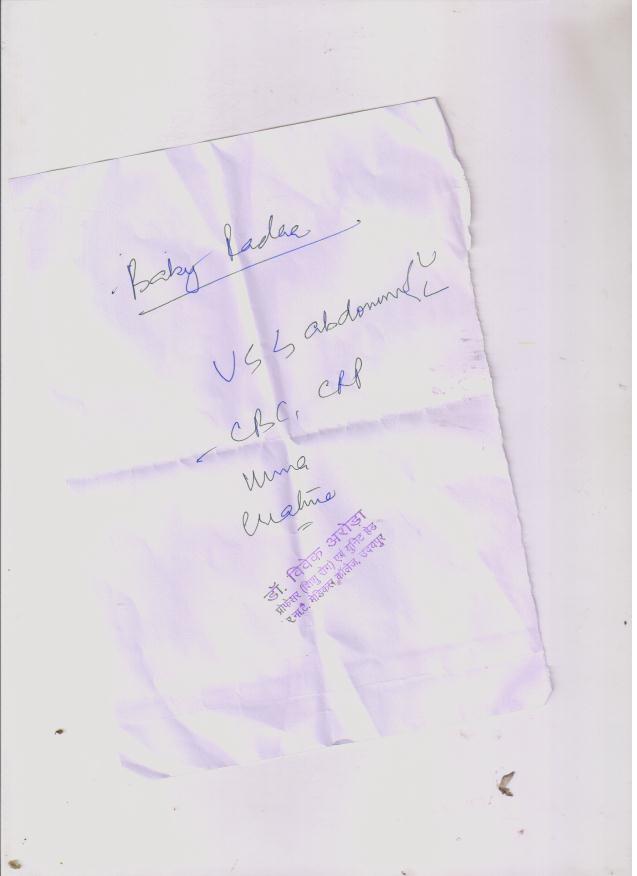 Baby
USG abdomen
CBC, CRP
Urea
Creatine
डॉ. विवेक अरोड़ा
प्रोफेसर (शिशु रोग) एवं युनिट हेड
र.ना.टै. मेडिकल कॉलेज, उदयपुर